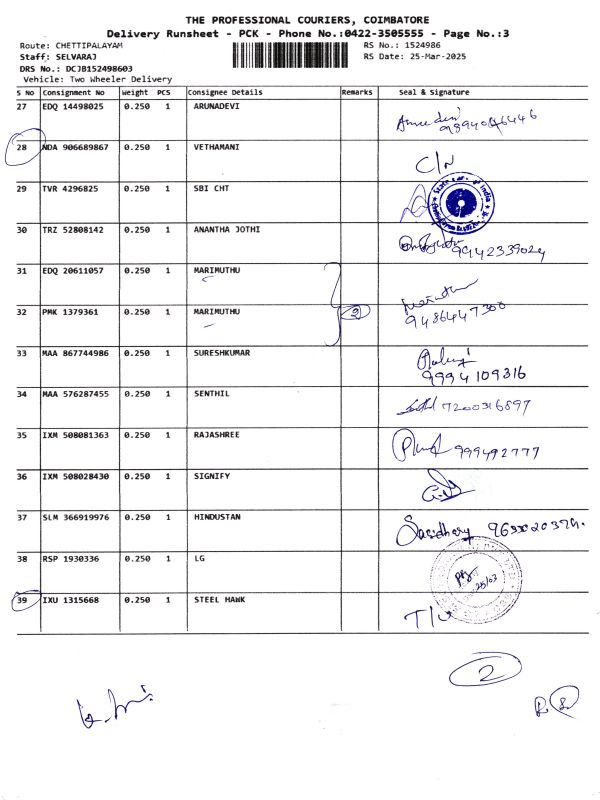 THE PROFESSIONAL COURIERS, COIMBATORE
Delivery Runsheet - PCK - Phone No.:0422-3505555 - Page No.:3
Route: CHETTIPALAYAM RS No.: 1524986
Staff: SELVARAJ RS Date: 25-Mar-2025
DRS No.: DCJB152498603
Vehicle: Two Wheeler Delivery
S No Consignment No Weight PCS Consignee Details Remarks Seal & Signature
27 EDQ 14498025 0.250 1 ARUNADEVI
28 NDA 906689867 0.250 1 VETHAMANI C/N
29 TVR 4296825 0.250 1 SBI CHT
30 TRZ 52808142 0.250 1 ANANTHA JOTHI 9942339024
31 EDQ 20611057 0.250 1 MARIMUTHU
32 PMK 1379361 0.250 1 MARIMUTHU 2 9486447300
33 MAA 867744986 0.250 1 SURESHKUMAR 9994109316
34 MAA 576287455 0.250 1 SENTHIL 7200316897
35 IXM 508081363 0.250 1 RAJASHREE 999492777
36 IXM 508028430 0.250 1 SIGNIFY
37 SLM 366919976 0.250 1 HINDUSTAN
38 RSP 1930336 0.250 1 LG 25/03
39 IXU 1315668 0.250 1 STEEL HAWK
2